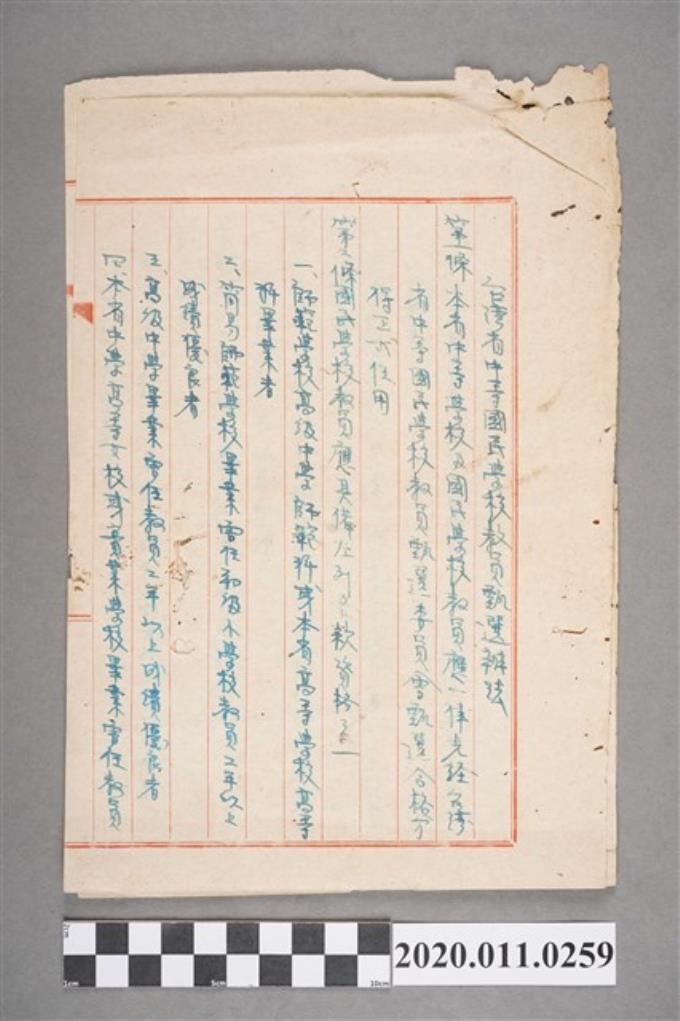 台湾省中等國民學校教員甄選辦法
第一條 本省中等學校及國民學校教員應一律先經台湾
省中等國民學校教員甄選委員會甄選合格方
得正式任用
第二條 國民學校教員應具備左列各款資格之一
一、師範學校高級中學師範科或本省高等學校高等
科畢業者
二、簡易師範學校畢業曾任初級小學校教員二年以上
成績優良者
三、高級中學畢業曾任教員二年以上成績優良者
四、本省中學高等女校或實業學校畢業曾任教員
1cm
5cm
10cm
2020.011.0259